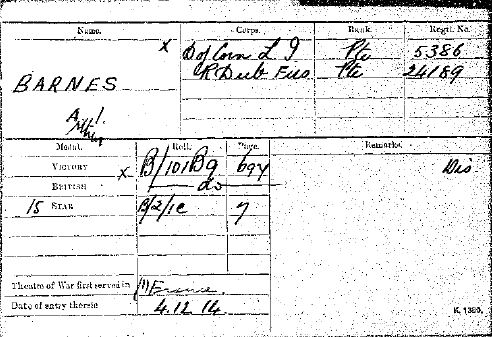 Name. Corps. Rank. Regtl. No.
X D of Corn L I Pte 5386
BARNES R Dub Fus Pte 24189
Medal. Roll. Page. Remarks.
VICTORY X B/101B9 694 Dis
BRITISH — do —
15 STAR B/2/1C 7
Theatre of War first served in (1) France.
Date of entry therein 4.12.14
K. 1380.